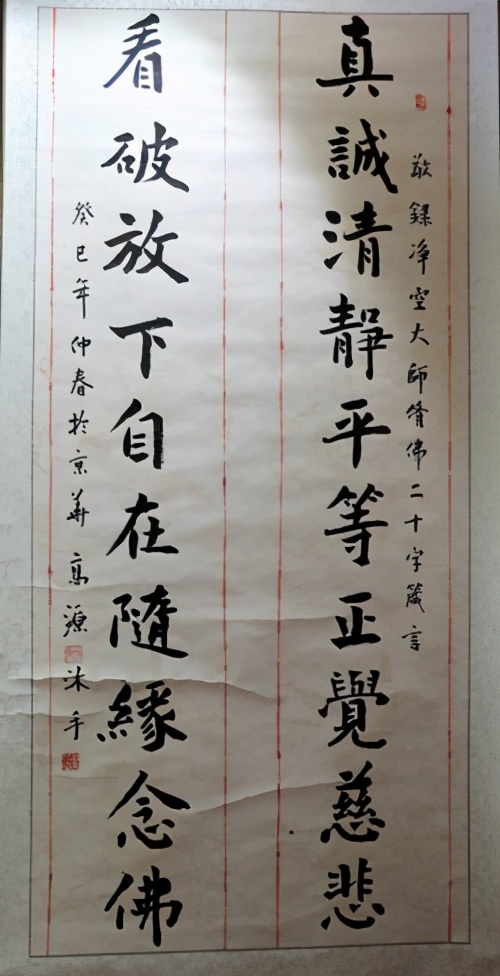 敬録净空大師脩佛二十字箴言
真誠清靜平等正覺慈悲
看破放下自在隨緣念佛
癸巳年仲春於京華高源沐手